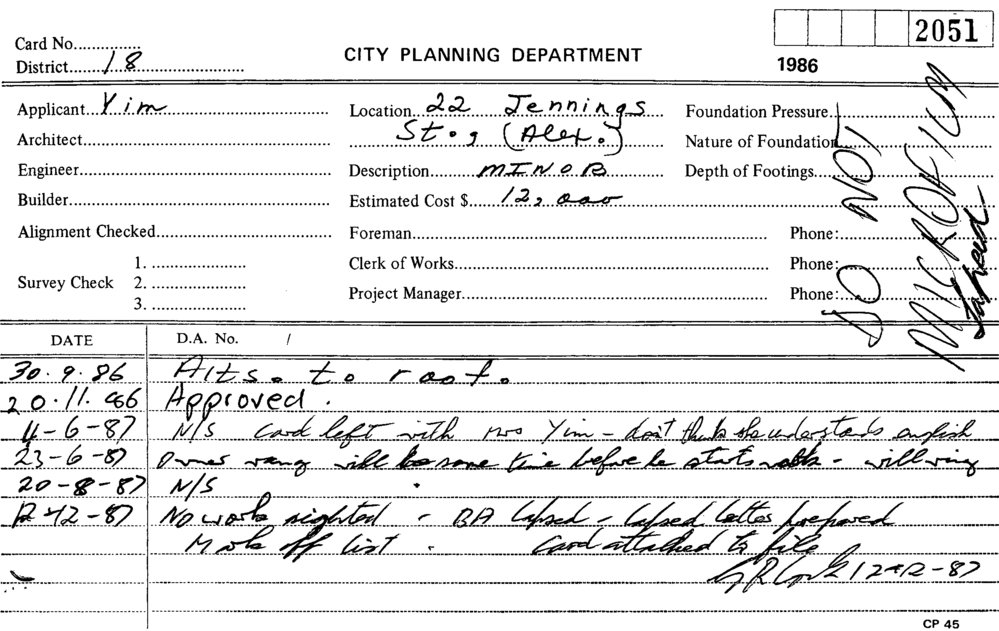 2051
Card No...............
District........18...........................
CITY PLANNING DEPARTMENT
1986
Applicant Yim
Location 22 Jennings
Foundation Pressure
Architect
St., (Alex.)
Nature of Foundation
Engineer
Description MINOR
Depth of Footings
Builder
Estimated Cost $ 12,000
Alignment Checked
Foreman
Phone:
Survey Check
1.
2.
3.
Clerk of Works
Phone:
Project Manager
Phone:
DO NOT
MICROFILM
Lapsed
DATE
D.A. No. /
30.9.86 Alts. to roof.
20.11.86 Approved.
4-6-87 N/S card left with Mrs Yim - don't think she understands english
23-6-87 Owner rang will be some time before he starts work - will ring
20-8-87 N/S
12-12-87 No work sighted - BA lapsed - lapsed letter prepared
Mark off list. Card attached to file
12-12-87
CP 45